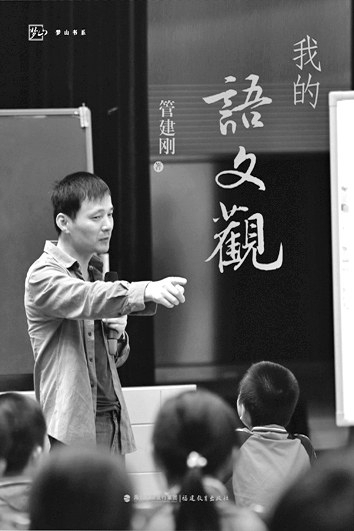 梦山
梦山书系
我的
語文觀
管建刚
著
福建教育出版社